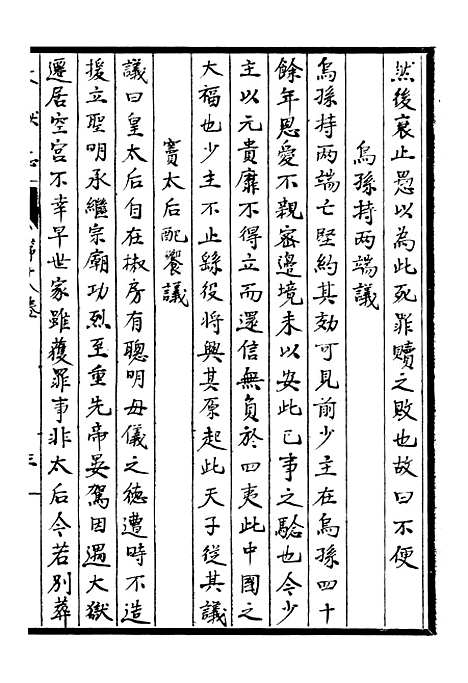 然後衰止愚以為此死罪贖之敗也故曰不便
烏孫持兩端議
烏孫持兩端亡堅約其効可見前少主在烏孫四十
餘年恩愛不親密邊境未以安此已事之驗也今少
主以元貴靡不得立而還信無負於四夷此中國之
大福也少主不止繇役將興其原起此天子從其議
竇太后配饗議
議曰皇太后自在椒房有聰明母儀之德遭時不造
援立聖明承繼宗廟功烈至重先帝晏駕因遇大獄
遷居空宮不幸早世家雖獲罪事非太后今若別葬
第十八卷
三